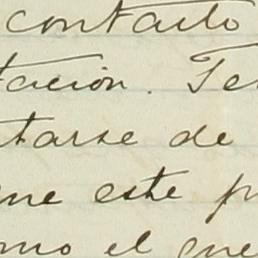 contarlo
tación. Te
tarse de
me este p
omo el que